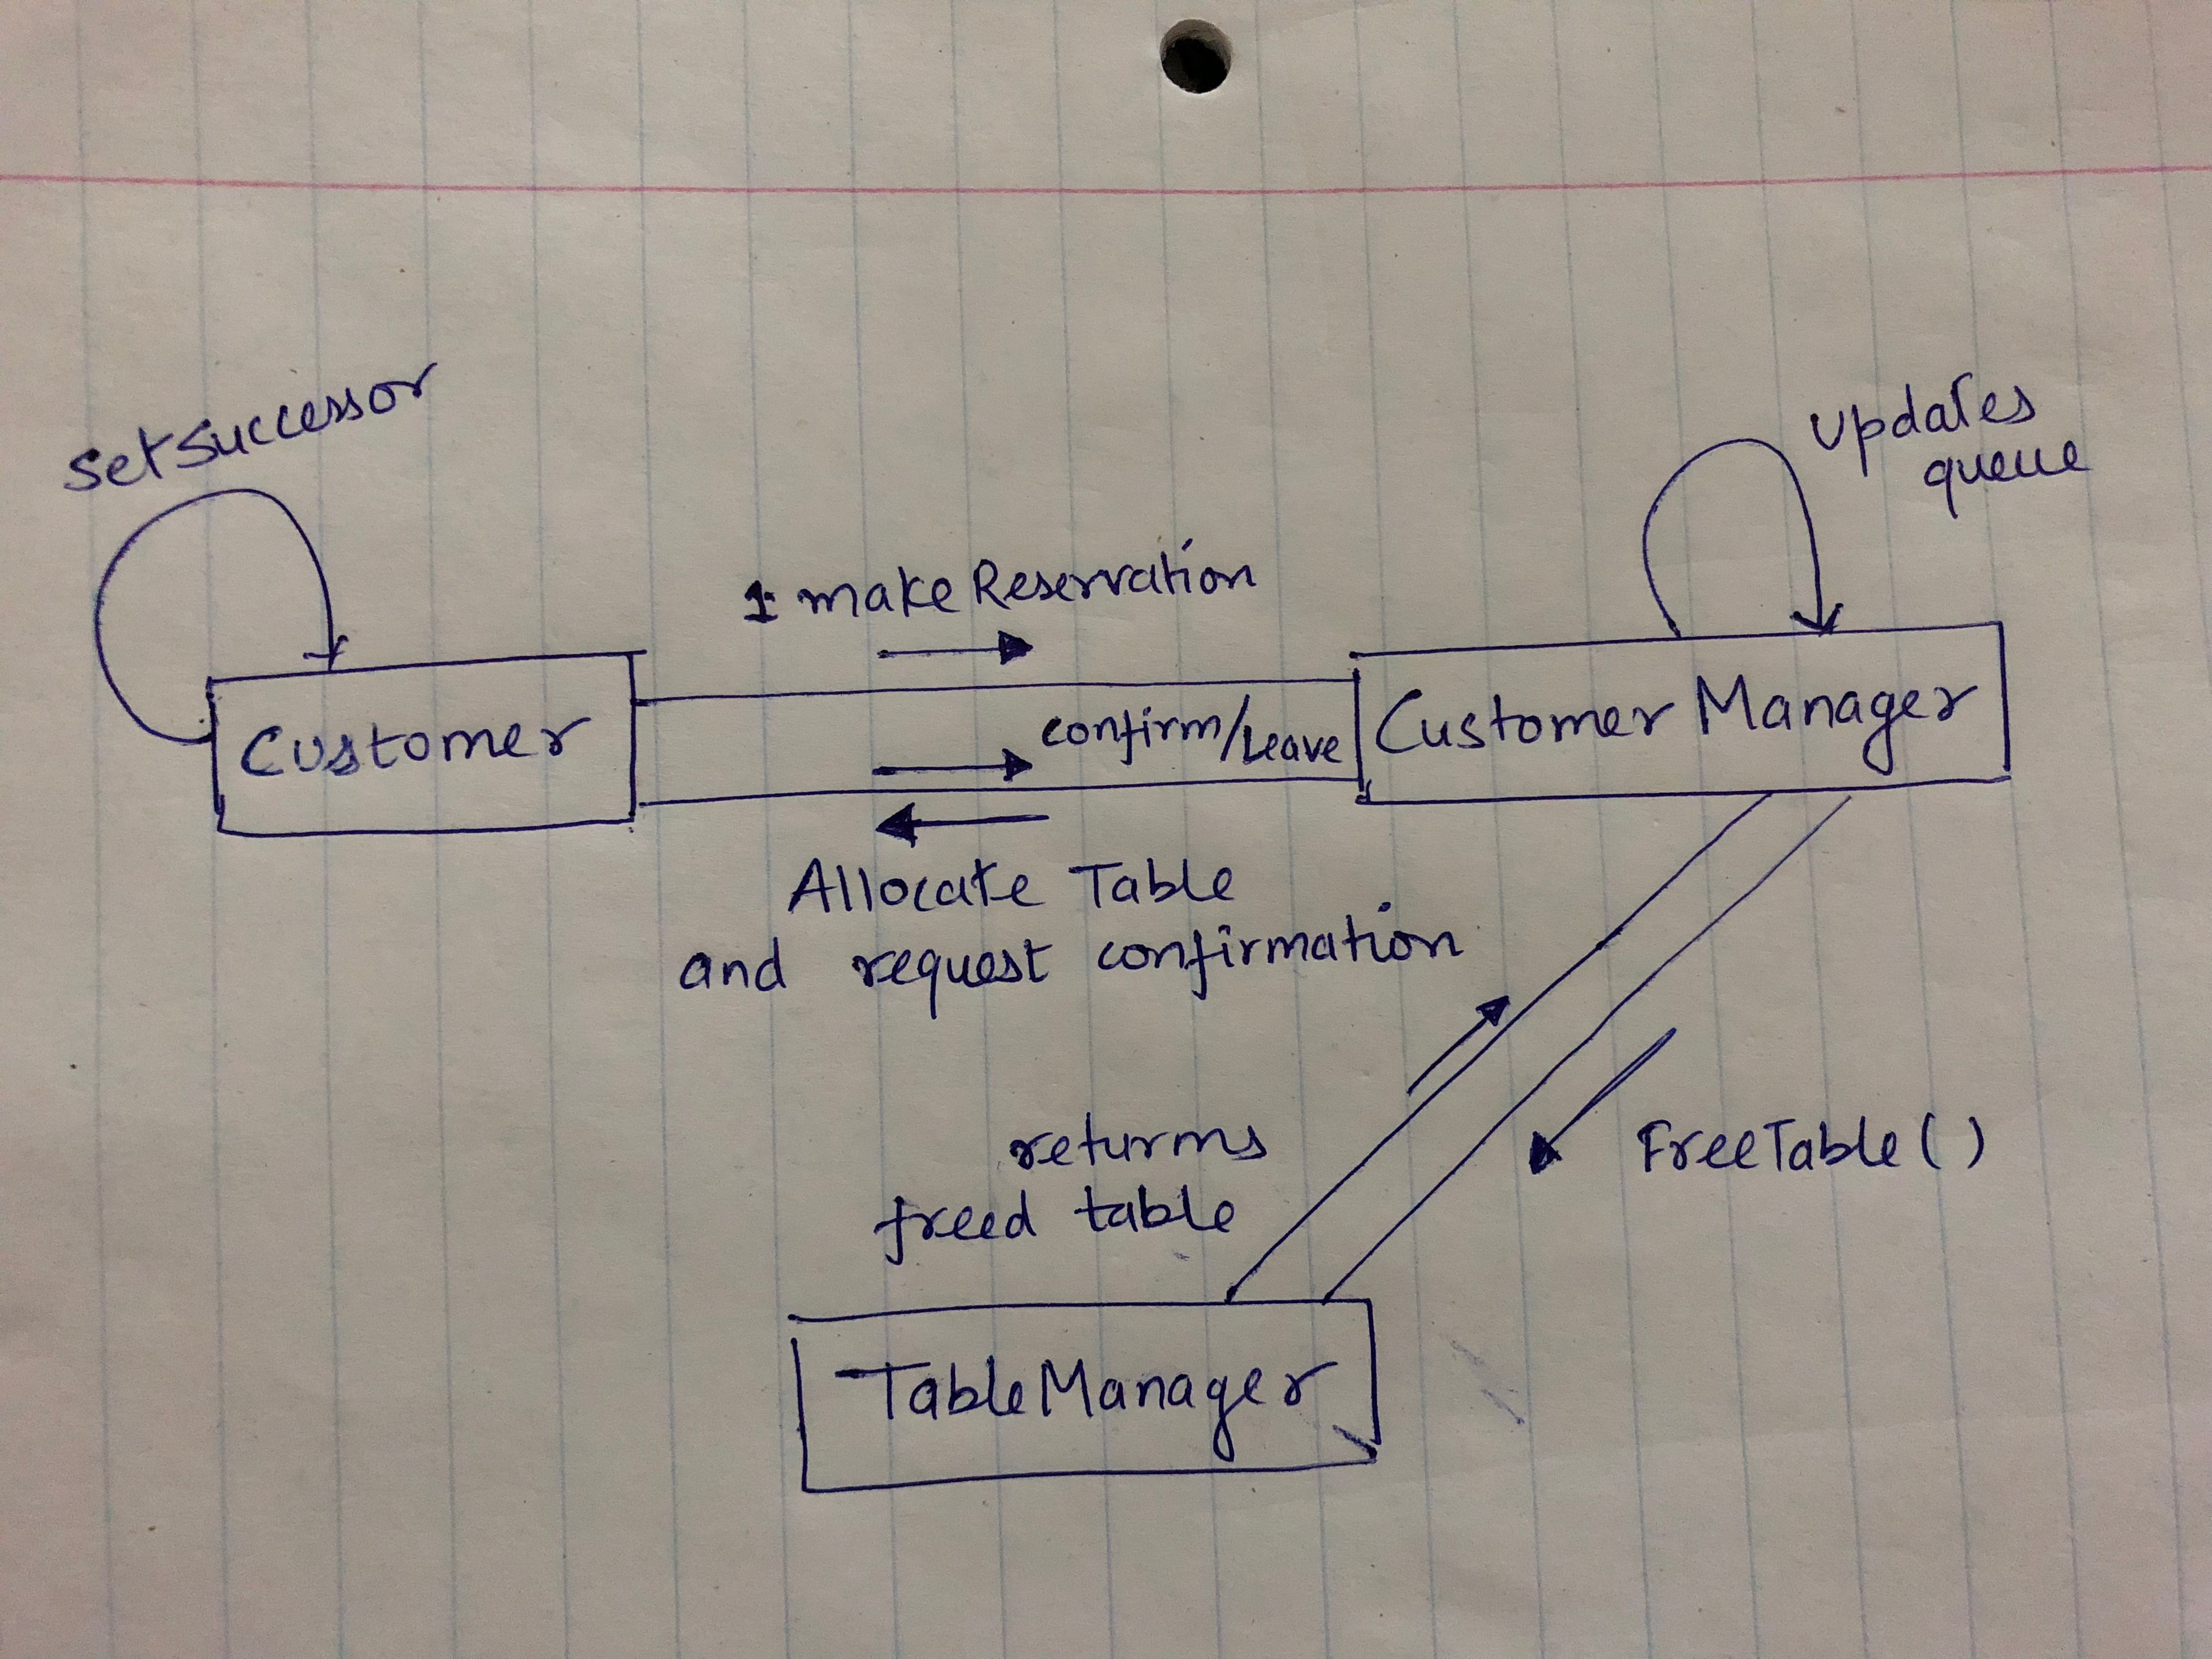 setSuccessor
Updates
queue
1: makeReservation
Customer
confirm/Leave
Customer Manager
Allocate Table
and request confirmation
returns
freed table
FreeTable()
TableManager